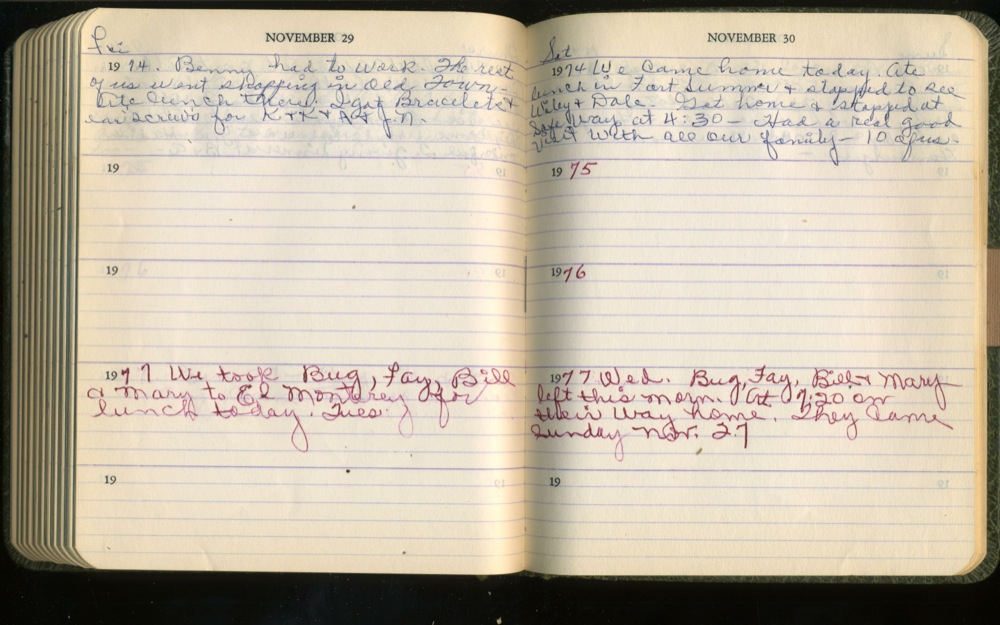 NOVEMBER 29
Fri
1974. Benny had to work. The rest
of us went shopping in Old Town -
Ate lunch there. I got Bracelets &
ear screws for K & K & A & J.N.
19
19
1977 We took Bug, Fay, Bill
& Mary to El Monterey for
lunch today. Tues.
19
NOVEMBER 30
Sat
1974 We came home today. Ate
lunch in Fort Sumner & stopped to see
Wiley & Dale. Got home & stopped at
Safe way at 4:30 - Had a real good
visit with all our family - 10 of us -
1975
1976
1977 Wed. Bug, Fay, Bill & Mary
left this morn. At 7:20 on
their way home. They came
Sunday Nov. 27
19